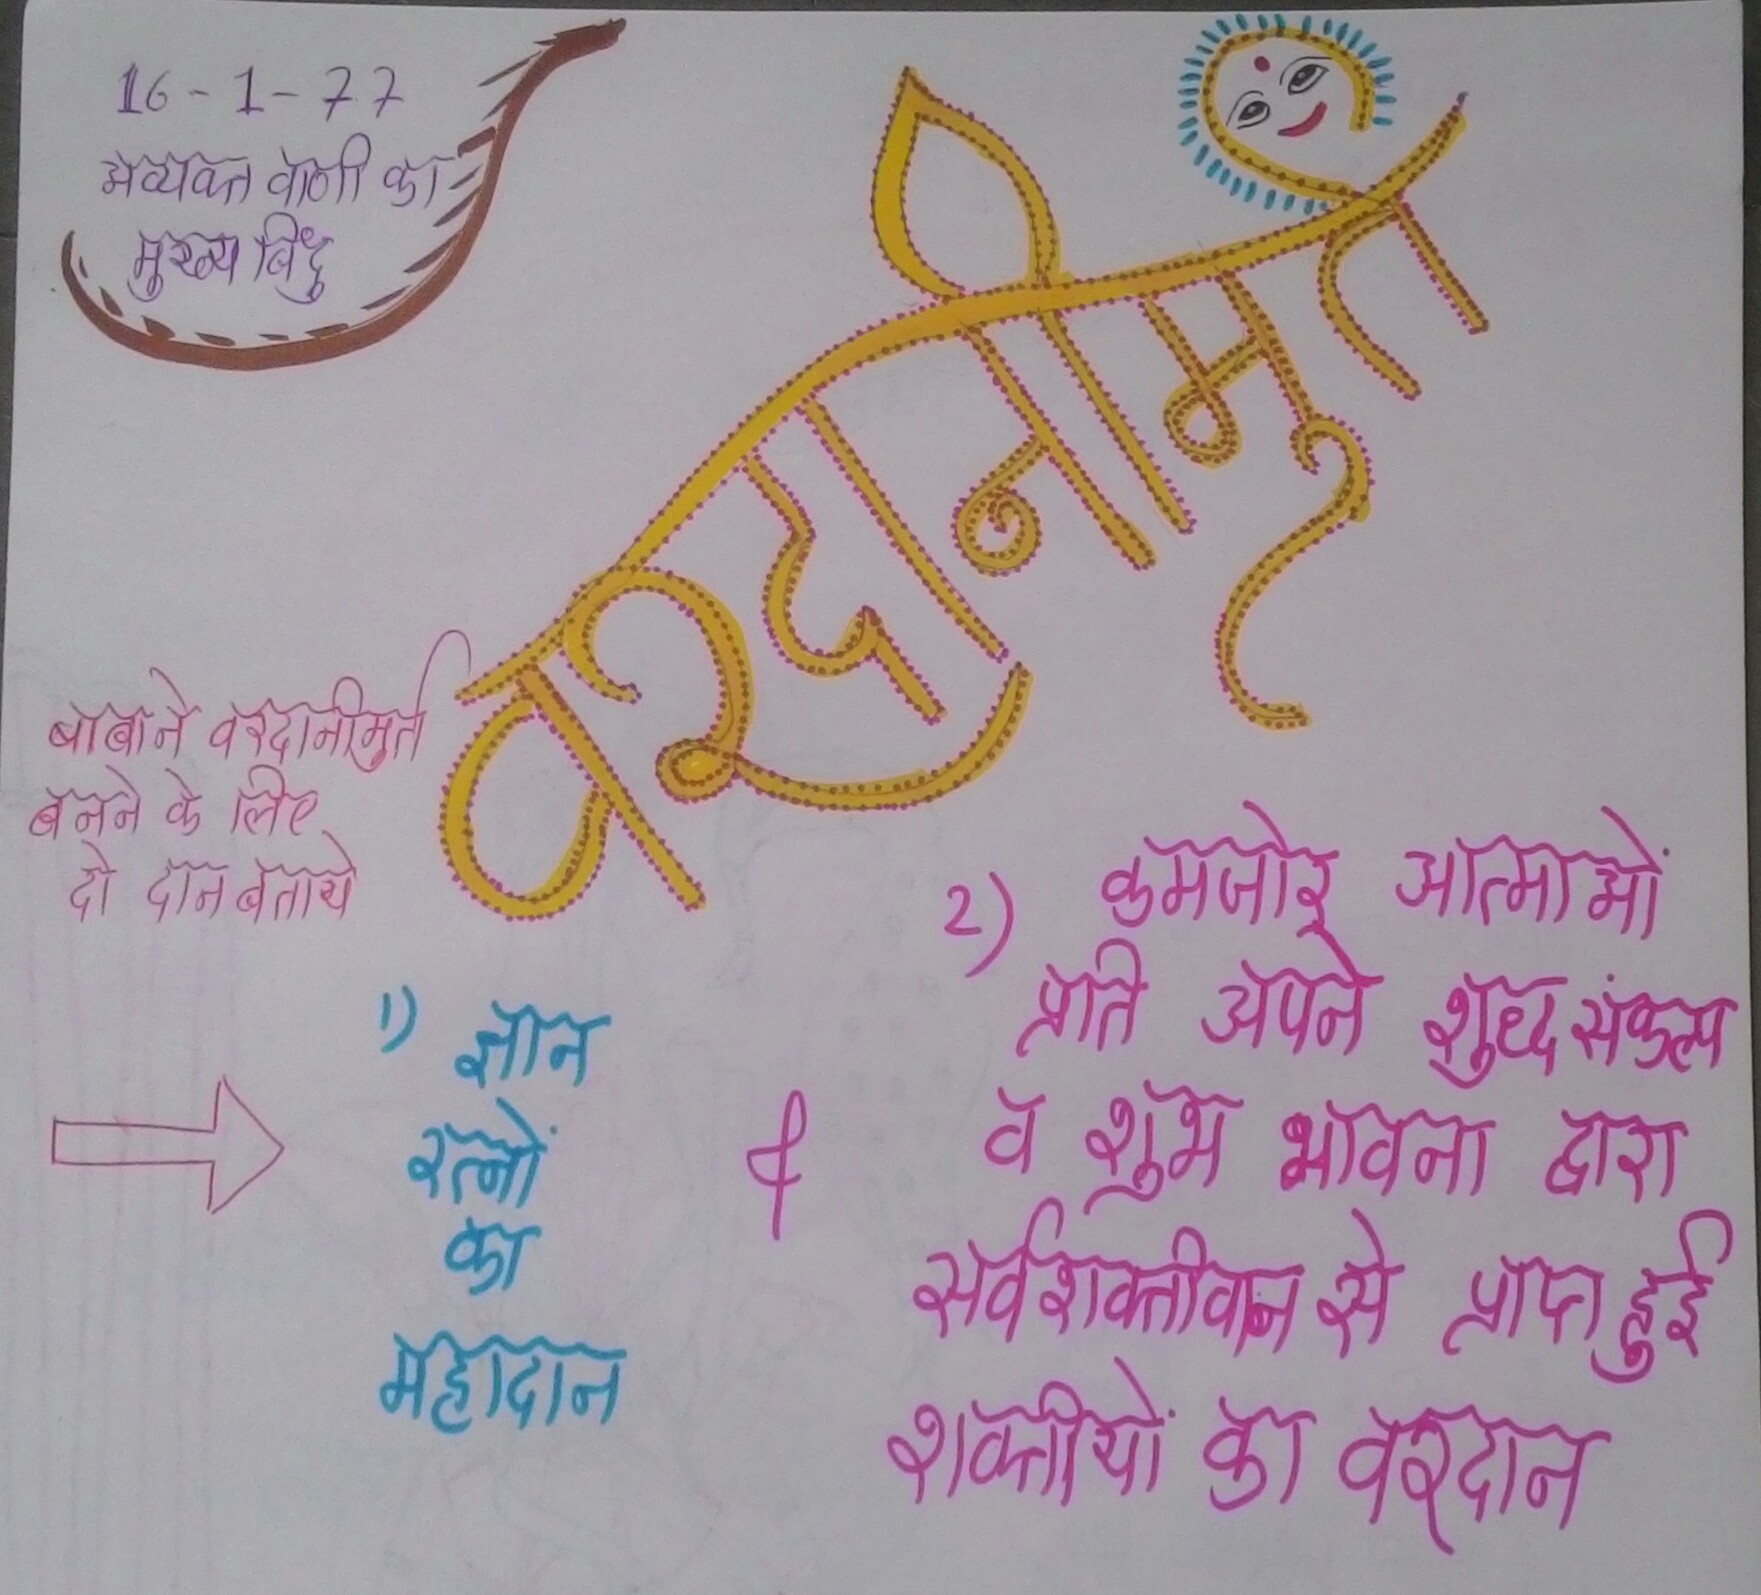 16-1-77
अव्यक्त वाणी का
मुख्य बिंदु
वरदानीमुर्त
बाबाने वरदानीमुर्त
बनने के लिए
दो दान बताये
1) ज्ञान
रत्नों
का
महादान
&
2) कमजोर आत्माओं
प्रति अपने शुद्ध संकल्प
व शुभ भावना द्वारा
सर्वशक्तीवान से प्राप्त हुई
शक्तीयों का वरदान